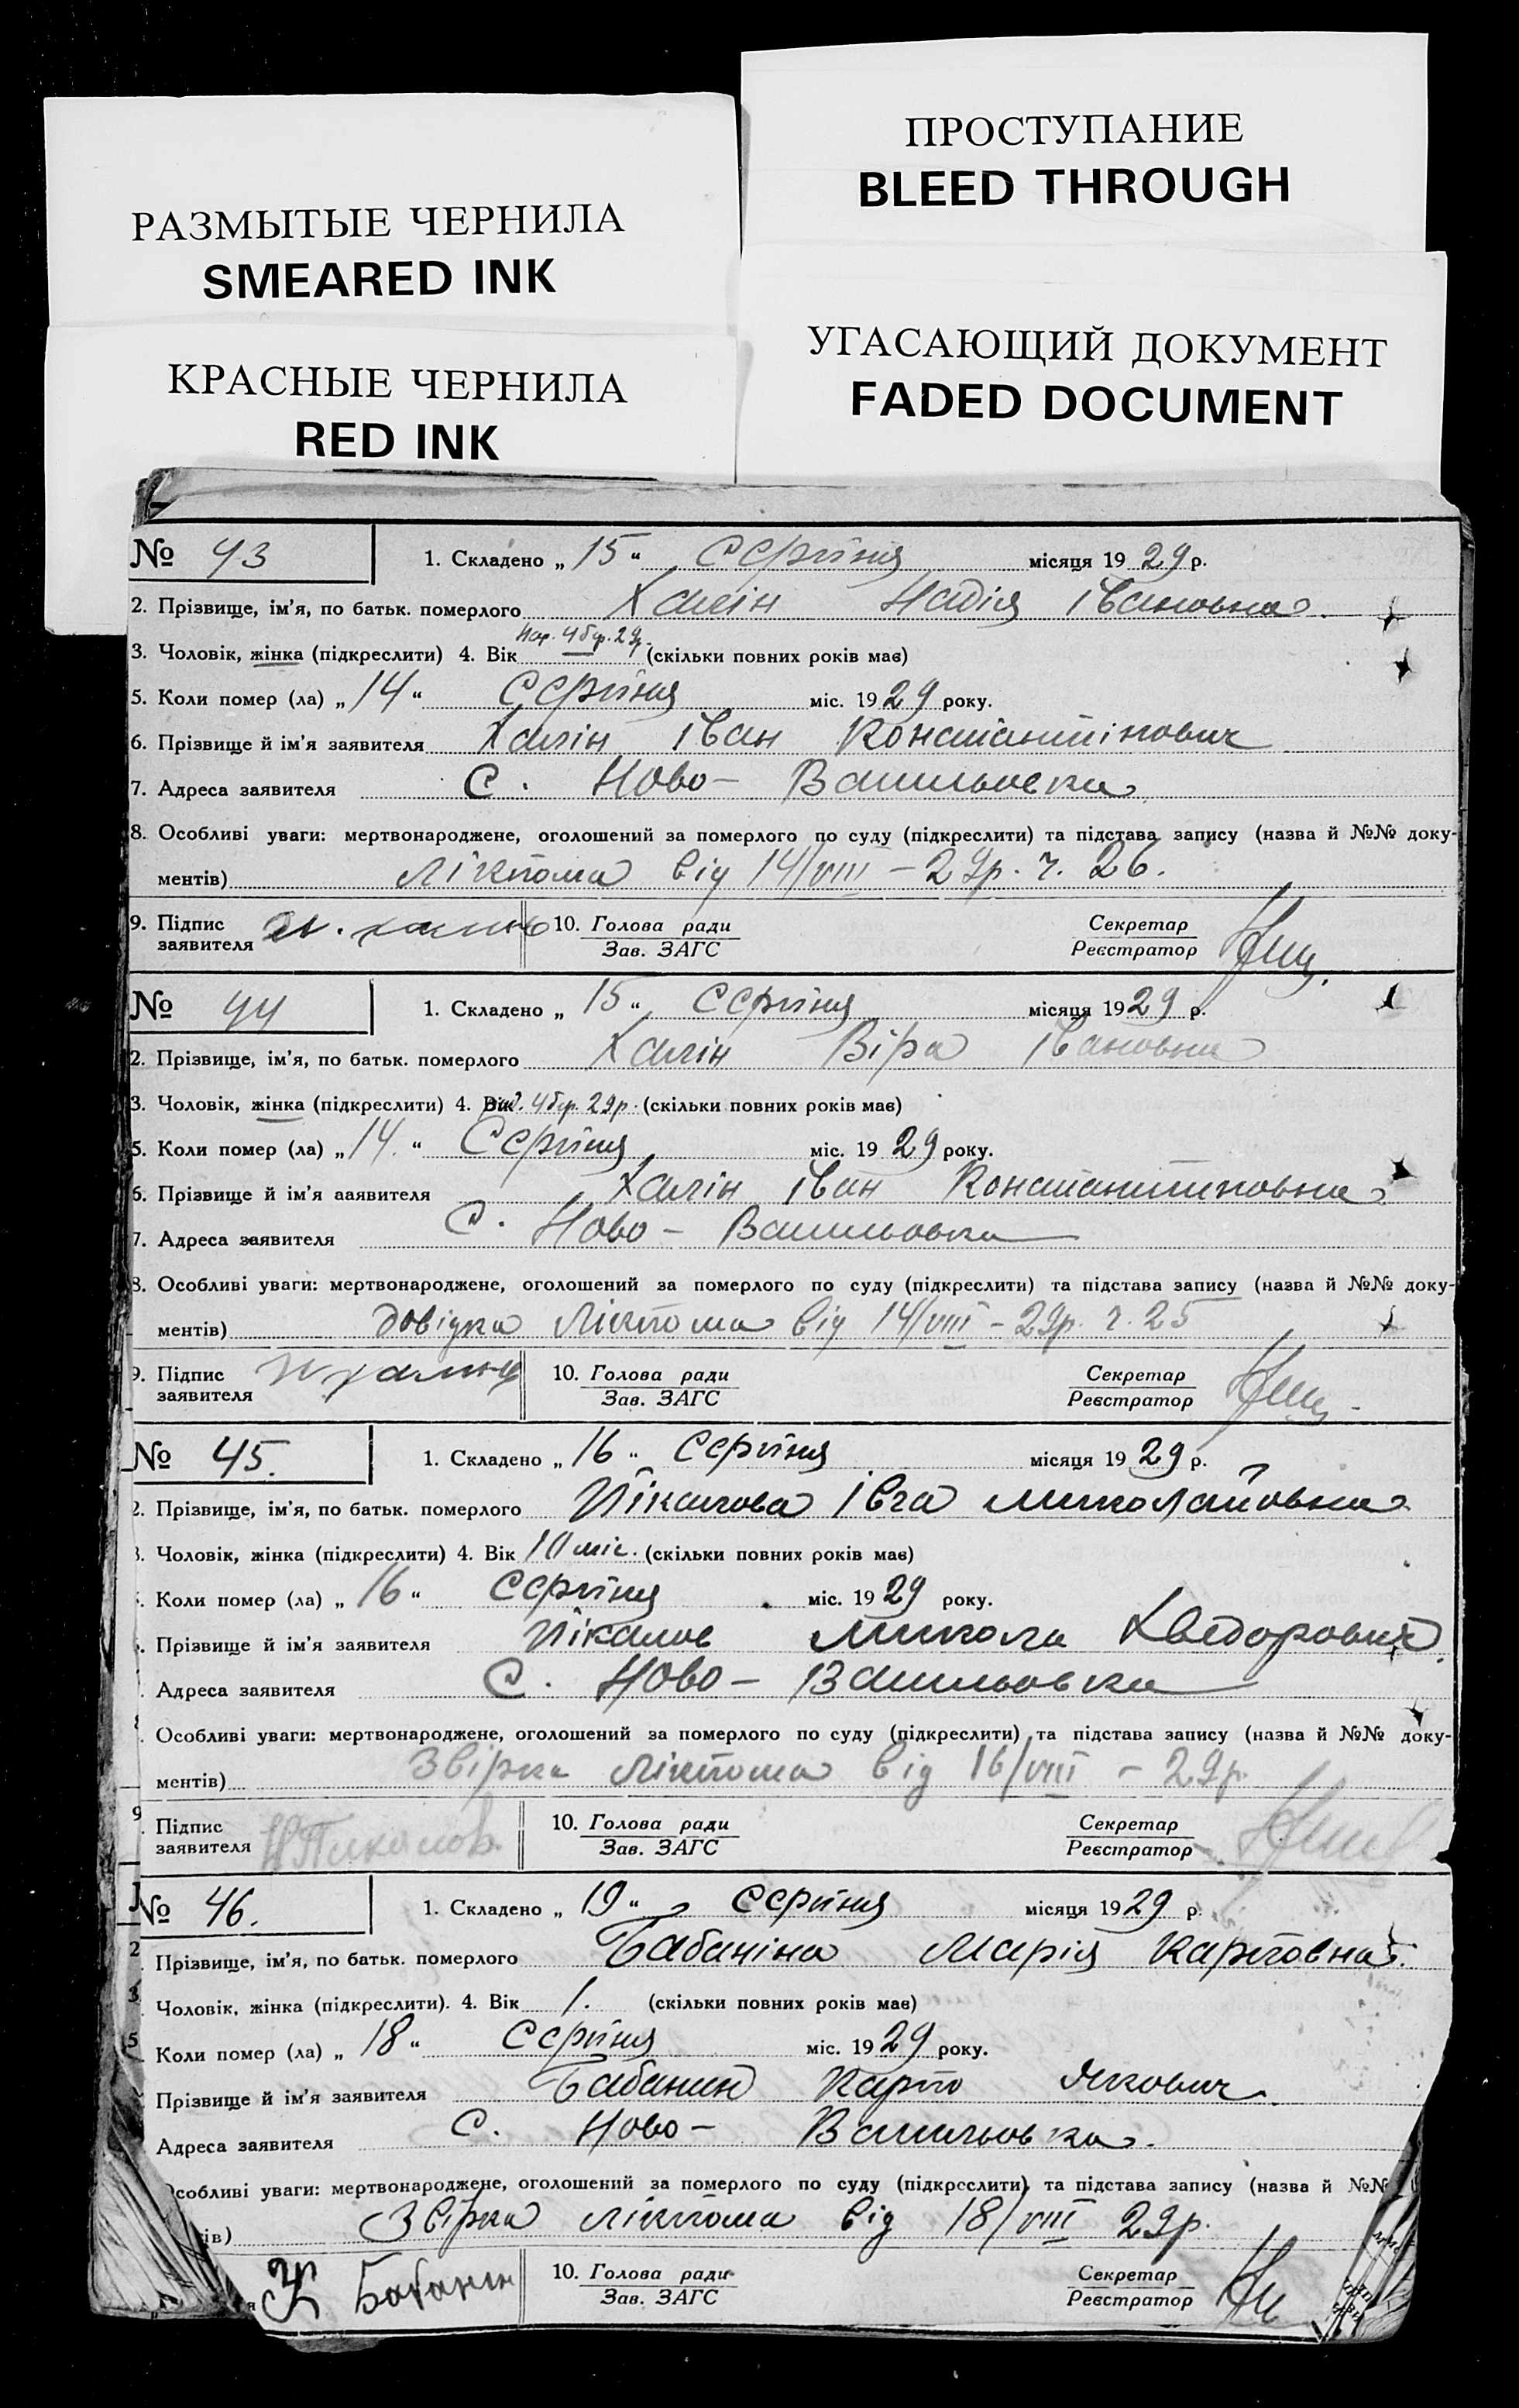 РАЗМЫТЫЕ ЧЕРНИЛА
SMEARED INK
ПРОСТУПАНИЕ
BLEED THROUGH
КРАСНЫЕ ЧЕРНИЛА
RED INK
УГАСАЮЩИЙ ДОКУМЕНТ
FADED DOCUMENT
№ 43 1. Складено „ 15 “ Серпня місяця 19 29 р.
2. Прізвище, ім’я, по батьк. померлого Халін Надія Івановна
3. Чоловік, жінка (підкреслити) 4. Вік Нар. 4 бер. 29р. (скільки повних років має)
5. Коли помер (ла) „ 14 “ Серпня міс. 19 29 року.
6. Прізвище й ім’я заявителя Халін Іван Константінович
7. Адреса заявителя С. Ново-Васильовка
8. Особливі уваги: мертвонароджене, оголошений за померлого по суду (підкреслити) та підстава запису (назва й №№ доку-
ментів) Лікпома від 14/VIII – 29р. ч. 26.
9. Підпис заявителя 10. Голова ради Зав. ЗАГС Секретар Реєстратор
№ 44 1. Складено „ 15 “ Серпня місяця 19 29 р.
2. Прізвище, ім’я, по батьк. померлого Халін Віра Івановна
3. Чоловік, жінка (підкреслити) 4. 4 бер. 29р. (скільки повних років має)
5. Коли помер (ла) „ 14. “ Серпня міс. 19 29 року.
6. Прізвище й ім’я ааявителя Халін Іван Константиновна
7. Адреса заявителя С. Ново – Васильовка
8. Особливі уваги: мертвонароджене, оголошений за померлого по суду (підкреслити) та підстава запису (назва й №№ доку-
ментів) довідка Лікпома від 14/VIII – 29р. ч. 25
9. Підпис заявителя 10. Голова ради Зав. ЗАГС Секретар Реєстратор
№ 45. 1. Складено „ 16 “ Серпня місяця 19 29 р.
2. Прізвище, ім’я, по батьк. померлого Пікалова Івга Миколайовна
3. Чоловік, жінка (підкреслити) 4. Вік 10 міс. (скільки повних років має)
Коли помер (ла) „ 16 “ Серпня міс. 19 29 року.
Прізвище й ім’я заявителя Пікалов Микола Хведорович
Адреса заявителя С. Ново – Васильовка
Особливі уваги: мертвонароджене, оголошений за померлого по суду (підкреслити) та підстава запису (назва й №№ доку-
ментів) Звірка Лікпома від 16/VIII – 29р.
9. Підпис заявителя Н Пикалов 10. Голова ради Зав. ЗАГС Секретар Реєстратор
№ 46. 1. Складено „ 19 “ Серпня місяця 19 29 р.
2. Прізвище, ім’я, по батьк. померлого Бабаніна Марія Карповна
3. Чоловік, жінка (підкреслити). 4. Вік 1. (скільки повних років має)
5. Коли помер (ла) „ 18 “ Серпня міс. 19 29 року.
Прізвище й ім’я заявителя Бабанин Карпо Якович
Адреса заявителя С. Ново – Васильовка.
Особливі уваги: мертвонароджене, оголошений за померлого по суду (підкреслити) та підстава запису (назва й №№
ів) Звірка лікпома від 18/VIII 29р.
Бабанин 10. Голова ради Зав. ЗАГС Секретар Реєстратор